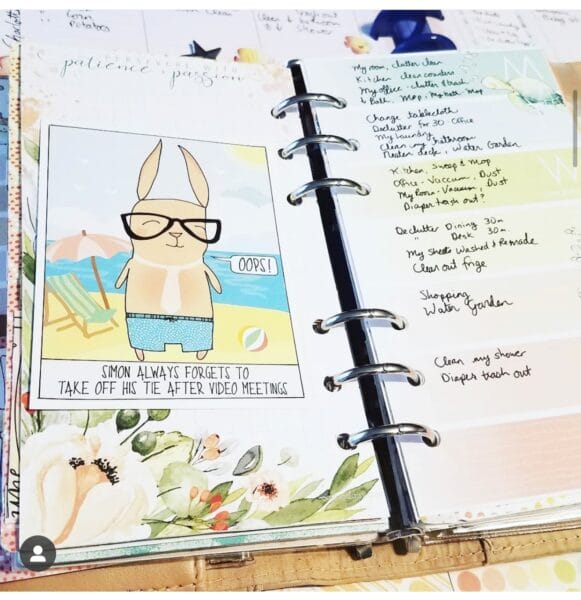 patience + passion
OOPS!
SIMON ALWAYS FORGETS TO
TAKE OFF HIS TIE AFTER VIDEO MEETINGS
My room, clutter clean
Kitchen clean counters
My office clutter & trash
& Bath, Mop, My bath Mop
Change tablecloth
Declutter for 30 Office
My laundry
Clean my bathroom
deck, Water Garden
Kitchen, Sweep & Mop
Office - Vaccum, Dust
My Room - Vacuum, Dust
Diaper trash out?
Declutter Dining 30m
" Desk 30m
My sheets Washed & Remade
Clean out frige
Shopping
Water Garden
Clean my shower
Diaper trash out
Corn
Potatoes